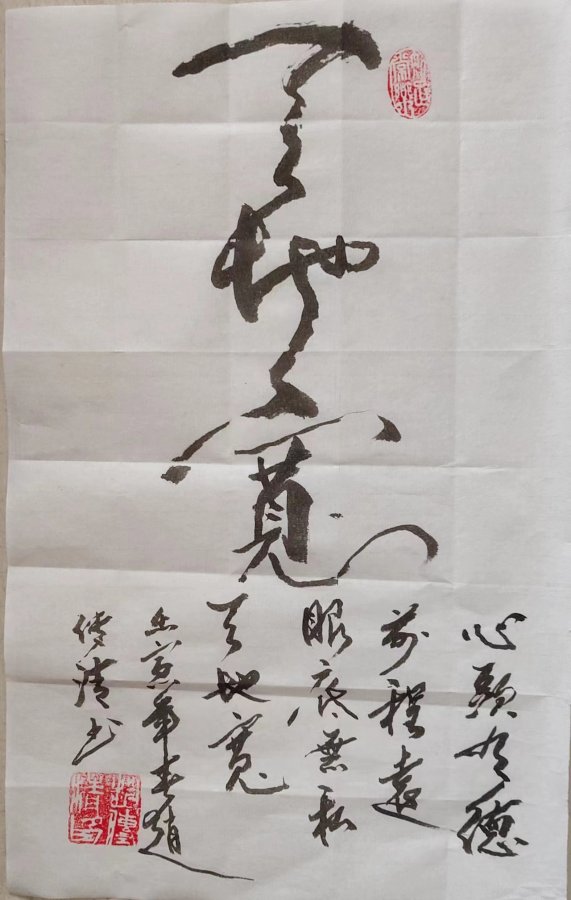 天地寬
心頭有德
前程遠
眼底無私
天地寬
壬寅年春趙
傳清书